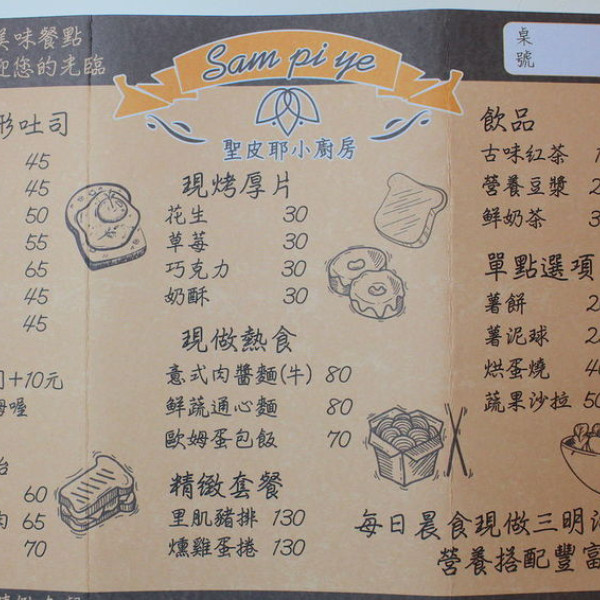 美味餐點
迎您的光臨
Sam pi ye
聖皮耶小廚房
桌號
形吐司
45
45
50
55
65
45
45
+10元
喔
60
65
70
現烤厚片
花生 30
草莓 30
巧克力 30
奶酥 30
現做熱食
意式肉醬麵(牛) 80
鮮蔬通心麵 80
歐姆蛋包飯 70
精緻套餐
里肌豬排 130
燻雞蛋捲 130
飲品
古味紅茶
營養豆漿
鮮奶茶
單點選項
薯餅
薯泥球
烘蛋燒
蔬果沙拉 50
每日晨食現做三明治
營養搭配豐富